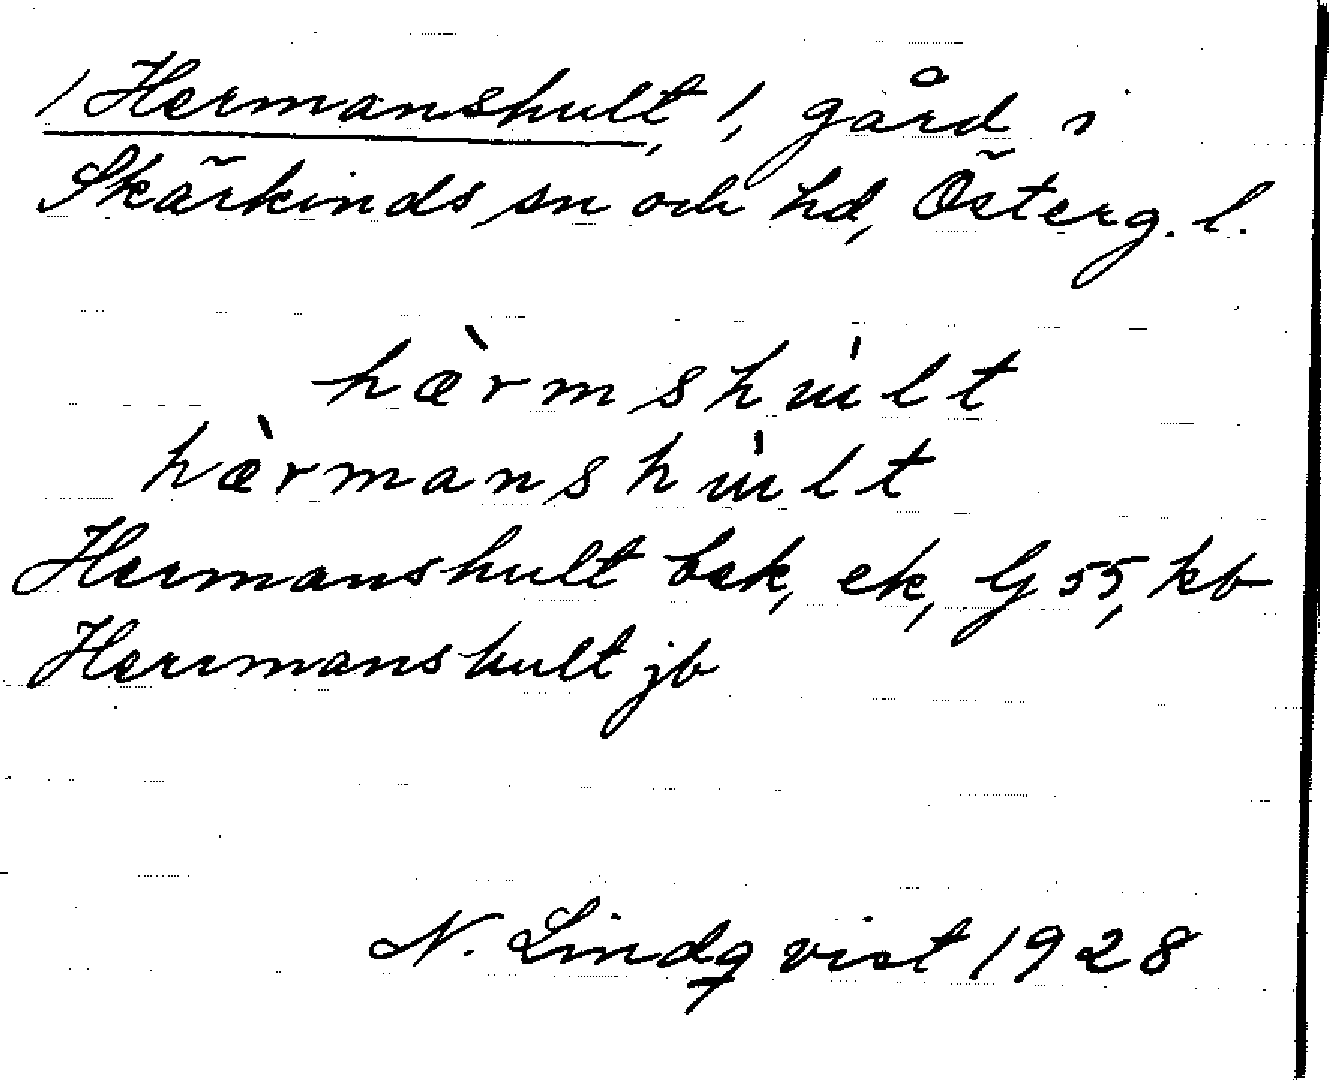 /Hermanshult, /, gård i
Skärkinds sn och hd, Österg. l.
hæ̀rmshu̇lt
hæ̀rmanshu̇lt
Hermanshult bek, ek, G 55, kb
Herrmanshult jb
N. Lindqvist 1928